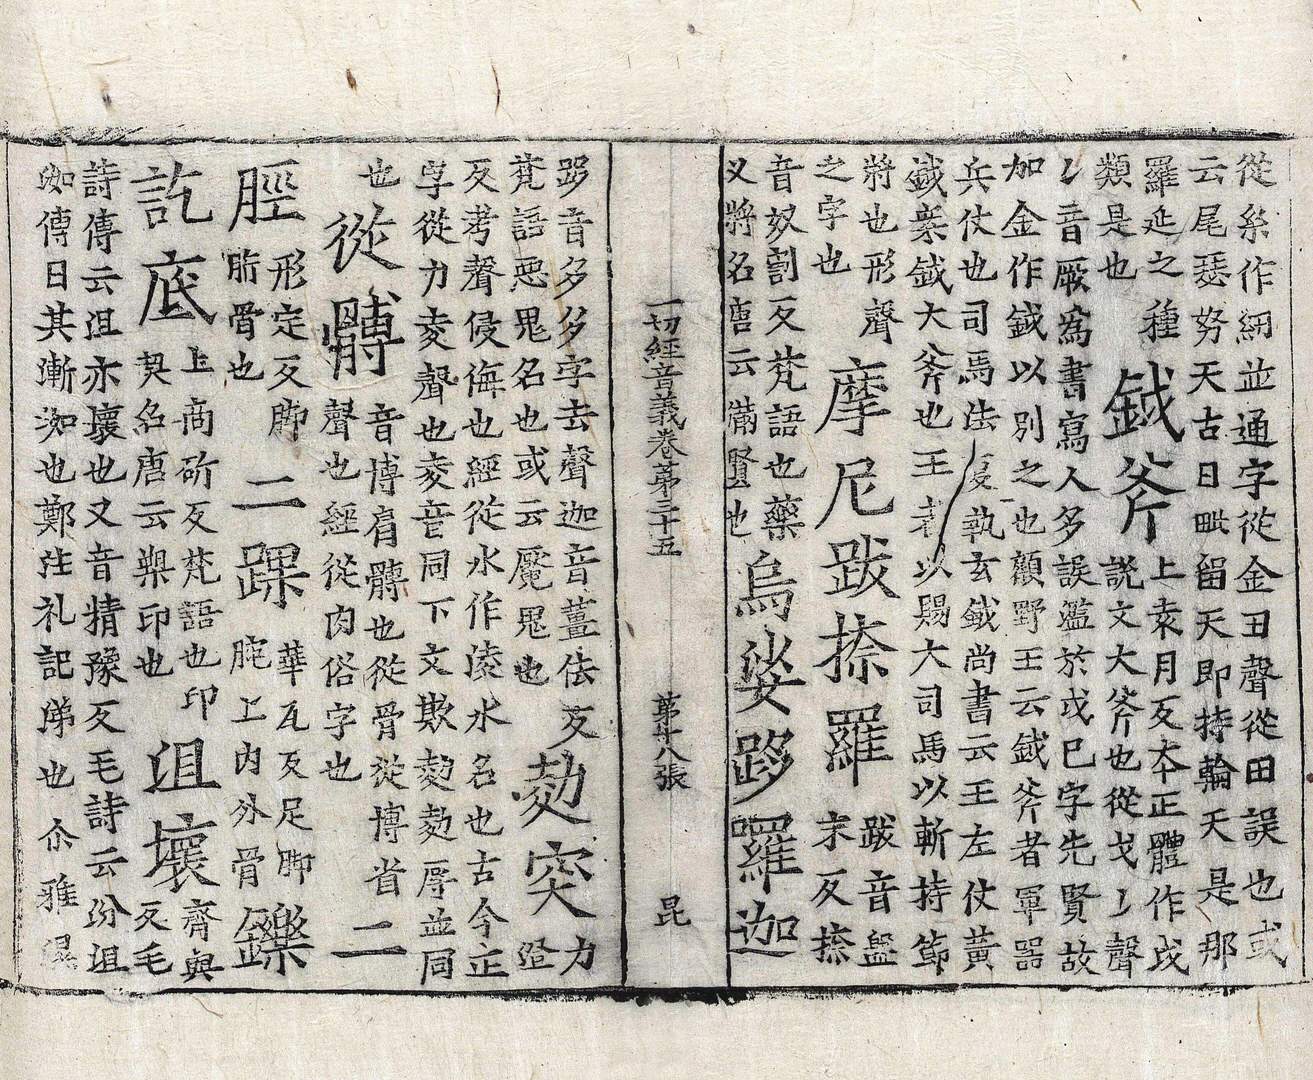 從糸作細並通字從金丑聲從田誤也或
云尾瑟努天古曰毗留天即持輪天是那
羅延之種
類是也
鉞斧
上袁月反夲正體作戉
說文大斧也從戈𠄌聲
𠄌音厥為書寫人多誤濫於戊巳字先賢故
加金作鉞以別之也顧野王云鉞斧者軍器
兵仗也司馬法夏執玄鉞尚書云王左仗黃
鉞案鉞大斧也王者以賜大司馬以斬持節
將也形聲
之字也
摩尼跋捺羅
跋音盤
末反捺
音奴割反梵語也藥
叉將名唐云滿賢也
烏娑跢囉迦
一切經音義卷第三十五 第十八張 昆
跢音多多字去聲迦音薑佉反
梵語惡鬼名也或云魘鬼也
勐突
力
蹬
反考聲侵侮也經從水作淩水名也古今正
字從力夌聲也夌音同下文欺勐勐辱並同
也
從髆
音博肩髆也從骨從博省
聲也經從肉俗字也
二
脛
形定反脚
胻骨也
二踝
華瓦反足脚
腕上內外骨
鑠
訖底
上商斫反梵語也印
契名唐云樂印也
沮壞
齊與
反毛
詩傳云沮亦壞也又音精豫反毛詩云汾沮
洳傳曰其漸洳也鄭注礼記陽也尒雅濕